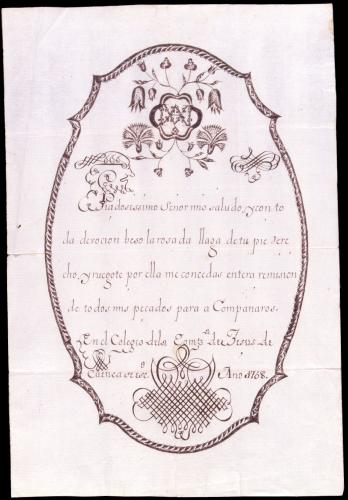 Piadosissimo Señor mio saludo, y con to
da devocion beso la rosada llaga de tu pie dere
cho, y ruegote por ella me concedas entera remision
de todos mis pecados para a Compañaros.
En el Colegio de la Comp.ª de Jesus de
Año 1768.